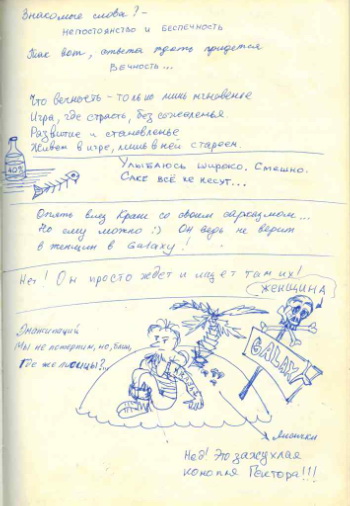 Знакомые слова? -
непостоянство и беспечность
Так вот, ответа ждать придется
Вечность...
Что вечность - только лишь мгновенье
Игра, где страсть, без сожаленья.
Развитие и становленье
Живем в игре, лишь в ней стареем.
Улыбаюсь широко. Смешно.
Саке всё не несут...
Опять влез Краис со своим сарказмом...
Но ему можно :) Он ведь не верит
в женщин в Galaxy!
Нет! Он просто ждет и ищет там их!
ЖЕНЩИНА
Мы не потерпим, но, блин,
Где же
GALAXY
Не! Это зажухлая
конопля Гектора!!!